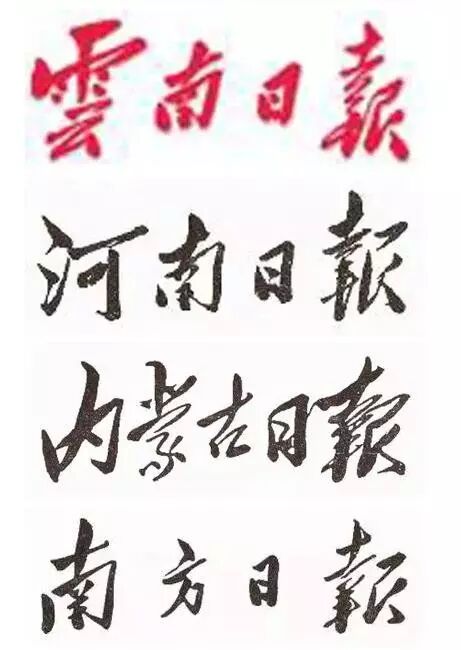 雲南日報
河南日報
内蒙古日報
南方日報